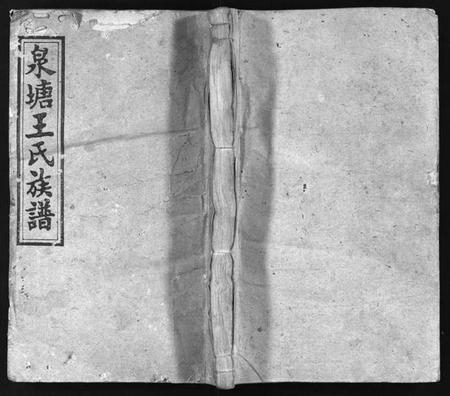 泉塘王氏族譜